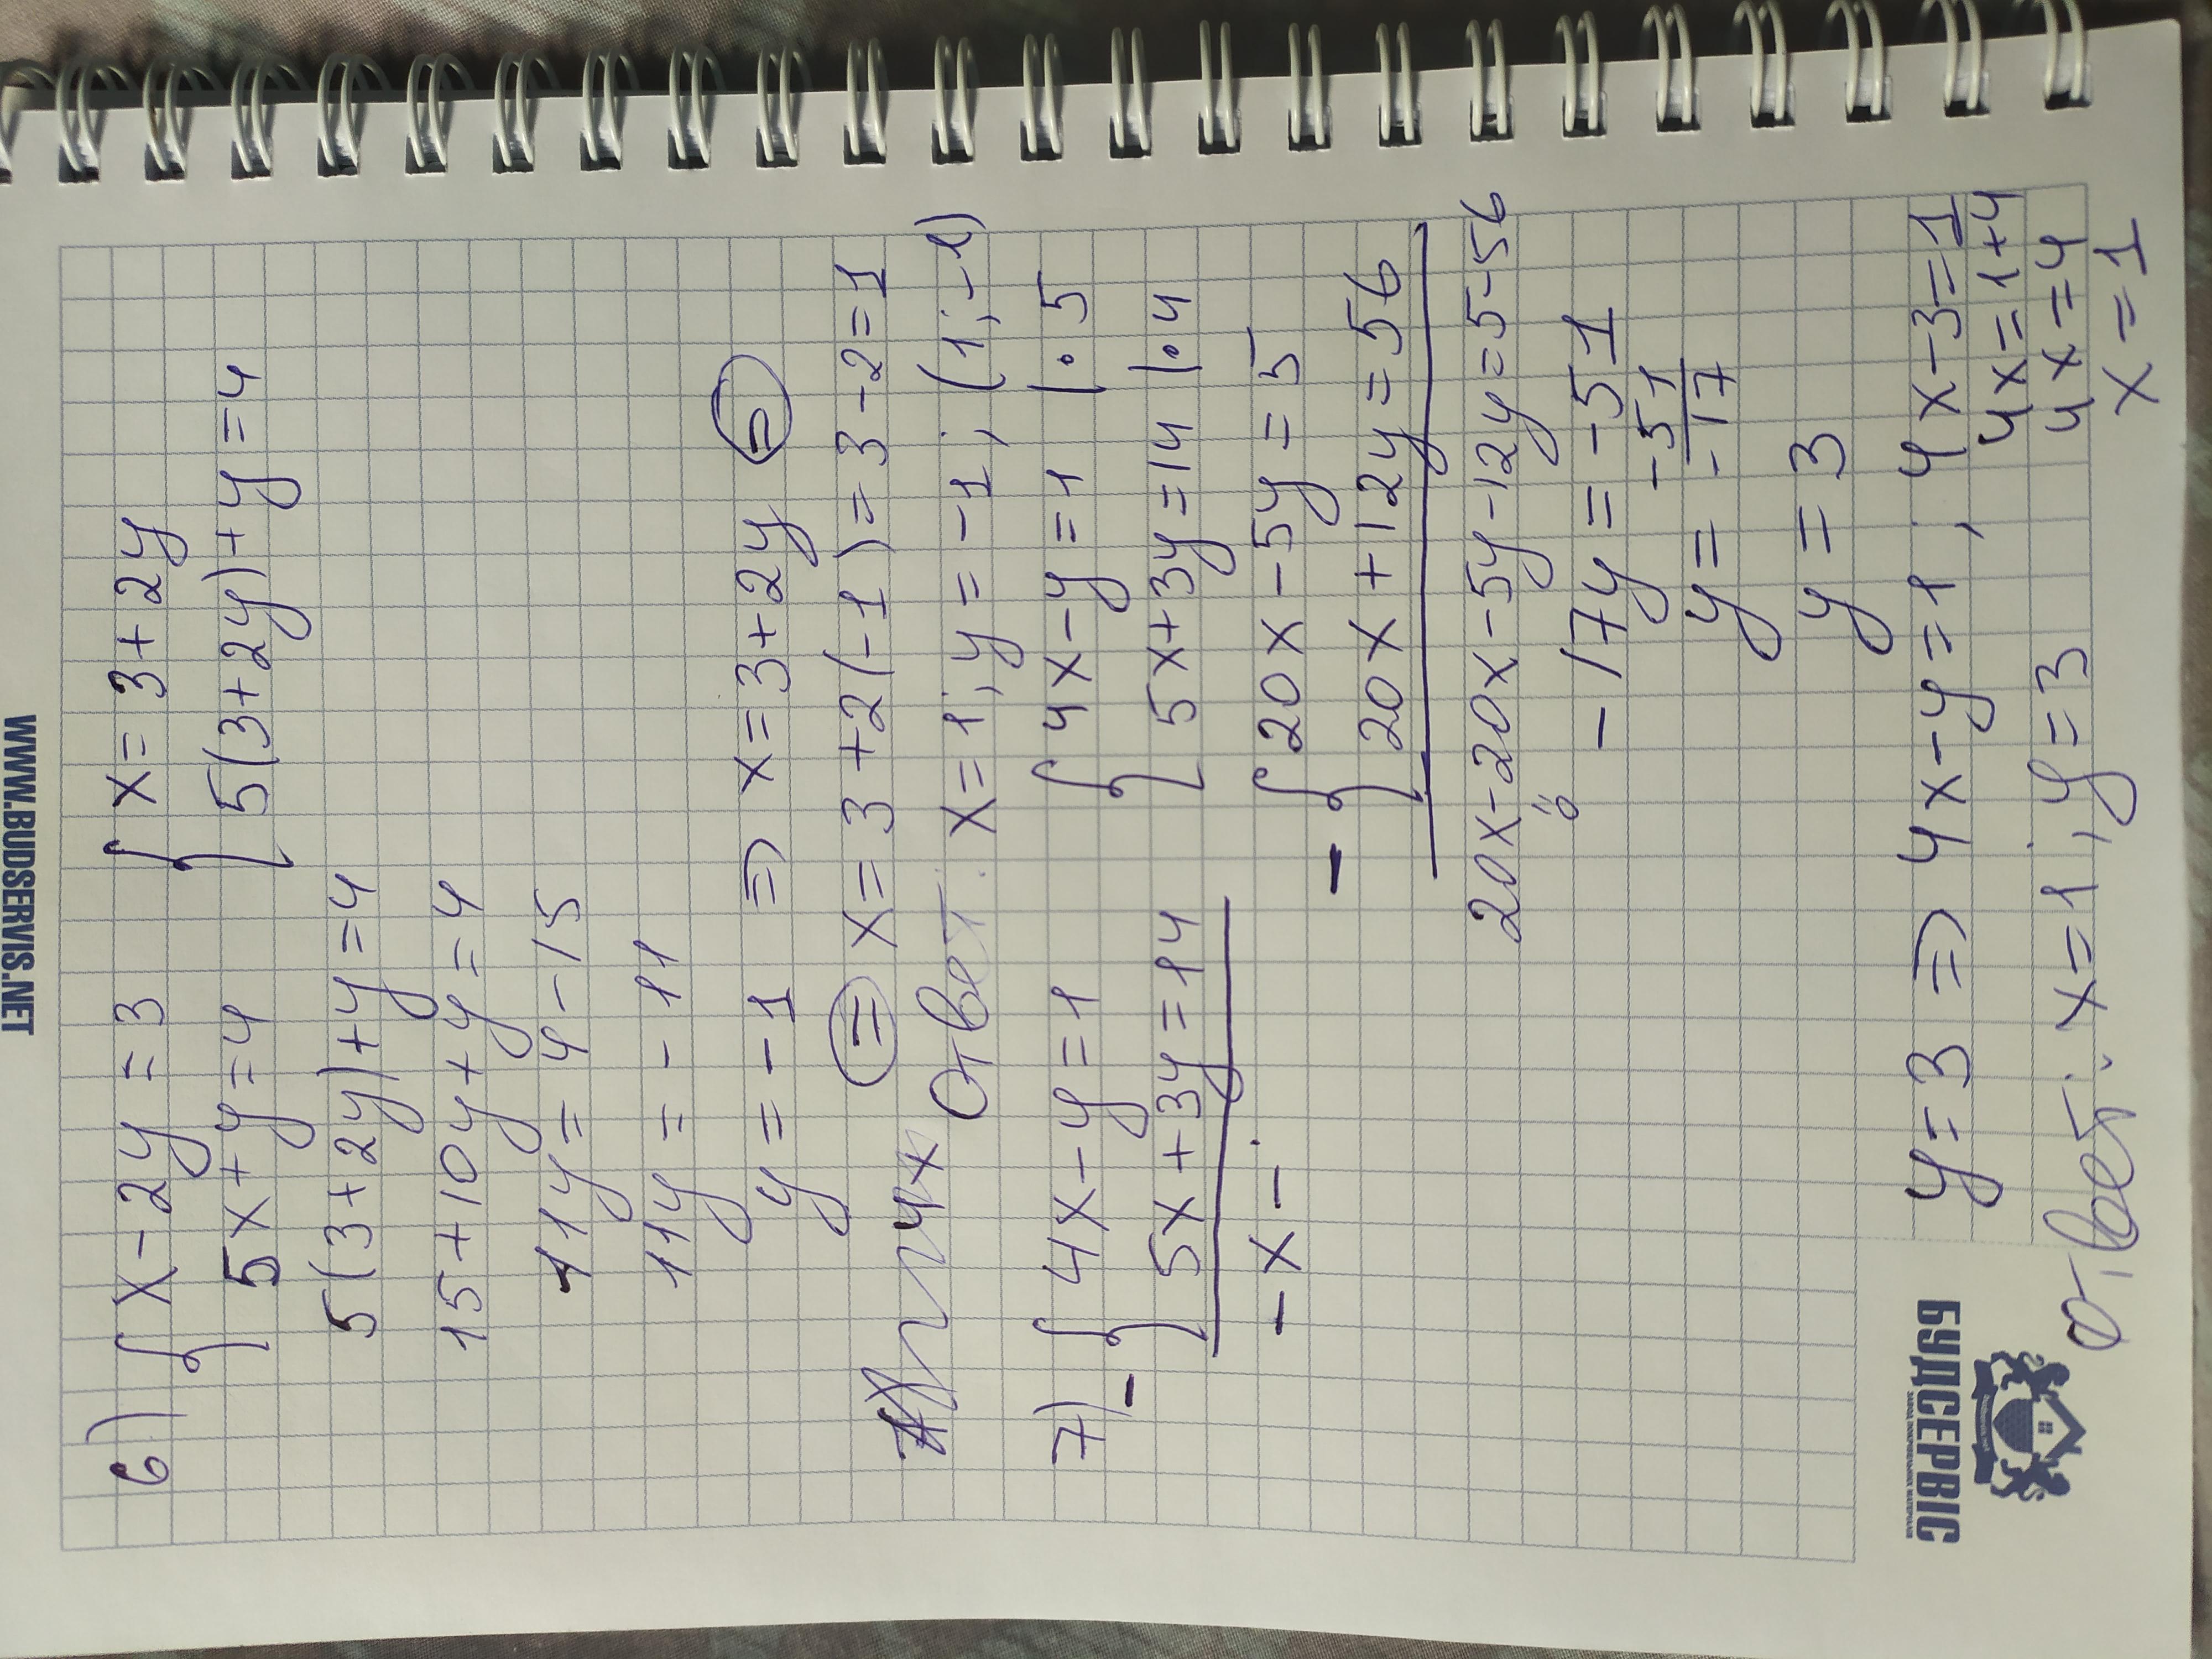 WWW.BUDSERVIS.NET
6) { x-2y=3 { x=3+2y
5x+y=4 5(3+2y)+y=4
5(3+2y)+y=4
15+10y+y=4
11y=4-15
11y=-11
y=-1 => x=3+2y =
= x=3+2(-1)=3-2=1
4x Ответ: x=1, y=-1; (1;-1)
7) - { 4x-y=1 { 4x-y=1 |·5
5x+3y=14 5x+3y=14 |·4
-x-
- { 20x-5y=5
20x+12y=56
20x-20x-5y-12y=5-56
-17y=-51
y=-51/-17
y=3
y=3 => 4x-y=1; 4x-3=1
4x=1+4
4x=4
x=1
Ответ: x=1, y=3
БУДСЕРВІС